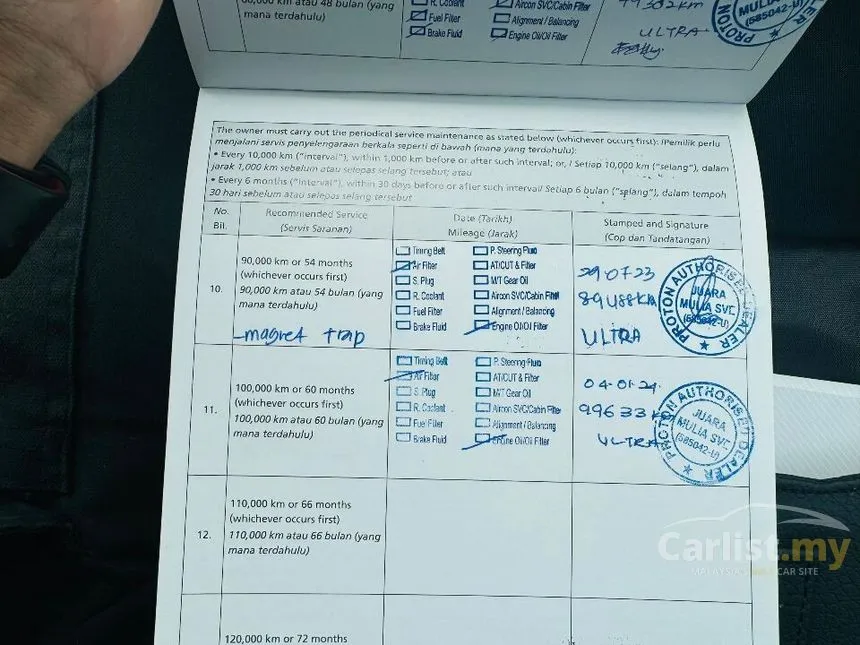 60,000 km atau 48 bulan (yang
mana terdahulu)
R. Coolant
Fuel Filter
Brake Fluid
Aircon SVC/Cabin Filter
Alignment / Balancing
Engine Oil/Oil Filter
ULTRA
MULIA SVC
(585042-U)
PROTON
DEALER
The owner must carry out the periodical service maintenance as stated below (whichever occurs first): /Pemilik perlu
menjalani servis penyelengaraan berkala seperti di bawah (mana yang terdahulu):
• Every 10,000 km ("interval"), within 1,000 km before or after such interval; or, / Setiap 10,000 km ("selang"), dalam
jarak 1,000 km sebelum atau selepas selang tersebut; atau
• Every 6 months ("interval"), within 30 days before or after such interval/ Setiap 6 bulan ("selang"), dalam tempoh
30 hari sebelum atau selepas selang tersebut
No.
Bil.
Recommended Service
(Servis Saranan)
Date (Tarikh)
Mileage (Jarak)
Stamped and Signature
(Cop dan Tandatangan)
10.
90,000 km or 54 months
(whichever occurs first)
90,000 km atau 54 bulan (yang
mana terdahulu)
-magnet trap
Timing Belt
Air Filter
S. Plug
R. Coolant
Fuel Filter
Brake Fluid
P. Steering Fluid
AT/CUT & Filter
M/T Gear Oil
Aircon SVC/Cabin Filter
Alignment / Balancing
Engine Oil/Oil Filter
29 07 23
89488KM
ULTRA
PROTON AUTHORISED DEALER
JUARA
MULIA SVC
(585042-U)
11.
100,000 km or 60 months
(whichever occurs first)
100,000 km atau 60 bulan (yang
mana terdahulu)
Timing Belt
Air Filter
S. Plug
R. Coolant
Fuel Filter
Brake Fluid
P. Steering Fluid
AT/CUT & Filter
M/T Gear Oil
Aircon SVC/Cabin Filter
Alignment / Balancing
Engine Oil/Oil Filter
04-01-24.
99633 KM
ULTRA
PROTON AUTHORISED DEALER
JUARA
MULIA SVC
(585042-U)
12.
110,000 km or 66 months
(whichever occurs first)
110,000 km atau 66 bulan (yang
mana terdahulu)
120,000 km or 72 months
Carlist.my
MALAYSIA'S NO.1 CAR SITE